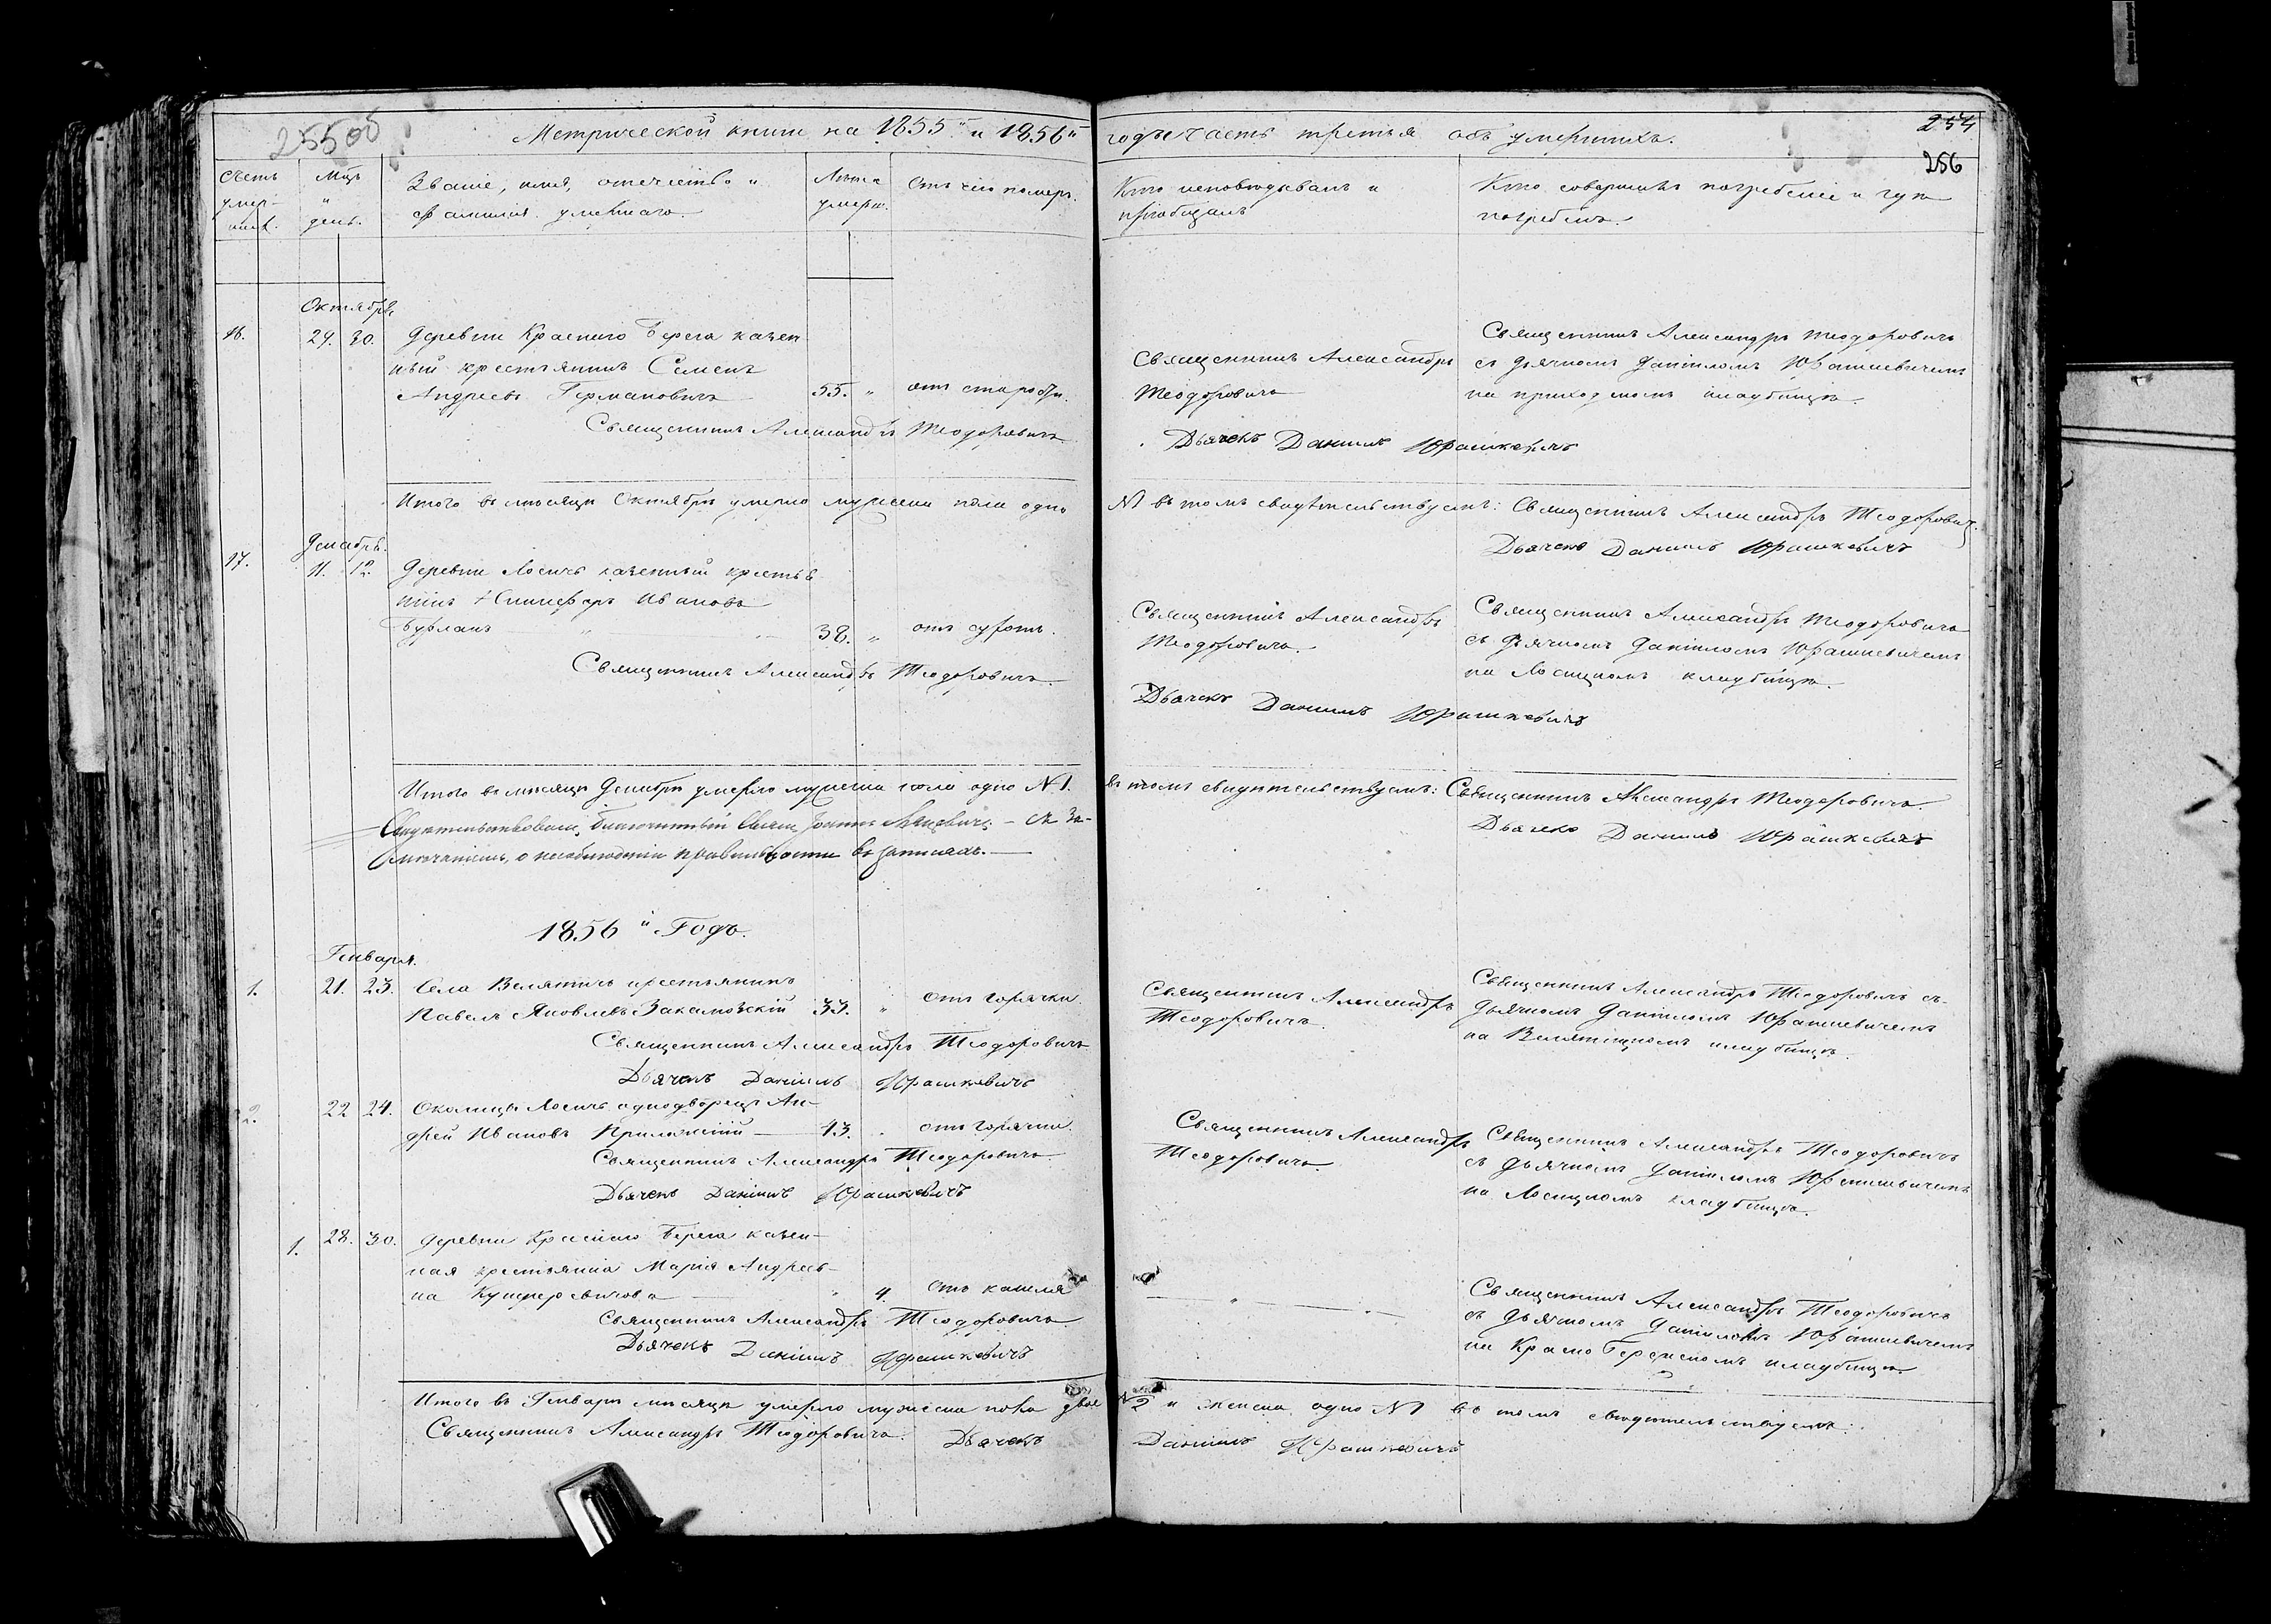 255 об
Метрической книги на 1855й и 1856й годы часть третья объ умершихъ.
254
256
Счетъ умер- Мцъ и день. Званіе, имя, отечество и фамилія умершаго. Лѣта умерш. Отъ чего померъ.
Кто исповѣдывалъ и пріобщалъ Кто совершилъ погребеніе и гдѣ погребенъ.
Октября
16. 29. 30. Деревни Краснаго Берега казен
ный крестьянинъ Семенъ
Андреевъ Германовичъ 55. „ отъ старости.
Священникъ Александръ Теодоровичъ
Священникъ Александръ
Теодоровичъ
Дьячекъ Даніилъ Юрашкевичъ
Священникъ Александръ Теодоровичъ
съ дьячкомъ Даніиломъ Юрашкевичемъ
на приходскомъ кладбищѣ.
Итого въ мѣсяцѣ Октябрѣ умерло мужеска пола одно №1 въ томъ свидѣтельствуемъ: Священникъ Александръ Теодоровичъ.
Дьячекъ Даніилъ Юрашкевичъ
Декабрь.
17. 11. 12. Деревни Лосичъ казенный крестья
нинъ Ивановъ
Бурланъ „ 38. „ отъ
Священникъ Александръ Теодоровичъ
Священникъ Александръ
Теодоровичъ.
Дьячекъ Даніилъ Юрашкевичъ
Священникъ Александръ Теодоровичъ
съ дьячкомъ Даніиломъ Юрашкевичемъ
на Лосицкомъ кладбищѣ.
Итого въ мѣсяцѣ Декабрѣ умерло мужеска пола одно №1. въ томъ свидѣтельствуемъ: Священникъ Александръ Теодоровичъ.
Дьячекъ Даніилъ Юрашкевичъ
Свидѣтельствовалъ, Благочинный Свящ. Іоаннъ – съ За-
мѣчаніемъ, о несоблюденіи правильности въ записяхъ.—
1856й Годъ.
Генваря.
1. 21. 23. Села Велятичъ крестьянинъ
Павелъ Яковлевъ Закаловскій 33. „ отъ горячки.
Священникъ Александръ Теодоровичъ
Дьячекъ Даніилъ Юрашкевичъ
Священникъ Александръ
Теодоровичъ.
Священникъ Александръ Теодоровичъ съ
дьячкомъ Даніиломъ Юрашкевичемъ
на Велятицкомъ кладбищѣ.
2. 22 24. Околицы Лосичъ однодворецъ Ан-
дрей Ивановъ 43. „ отъ горячки.
Священникъ Александръ Теодоровичъ
Дьячекъ Даніилъ Юрашкевичъ
Священникъ Александръ
Теодоровичъ.
Священникъ Александръ Теодоровичъ
съ дьячкомъ Даніиломъ Юрашкевичемъ
на Лосицкомъ кладбищѣ.
1. 28. 30. Деревни Краснаго Берега казен-
ная крестьянка Марія Андреев-
на Куцеровичова „ 4. отъ кашеля
Священникъ Александръ Теодоровичъ
Дьячекъ Даніилъ Юрашкевичъ
Священникъ Александръ Теодоровичъ
съ дьячкомъ Даніиломъ Юрашкевичемъ
на Красно Бережскомъ кладбищѣ.
Итого въ Генварѣ мѣсяцѣ умерло мужеска пола двое №2 и женска одно №1 въ томъ свидѣтельствуемъ:
Священникъ Александръ Теодоровичъ. Дьячекъ Даніилъ Юрашкевичъ